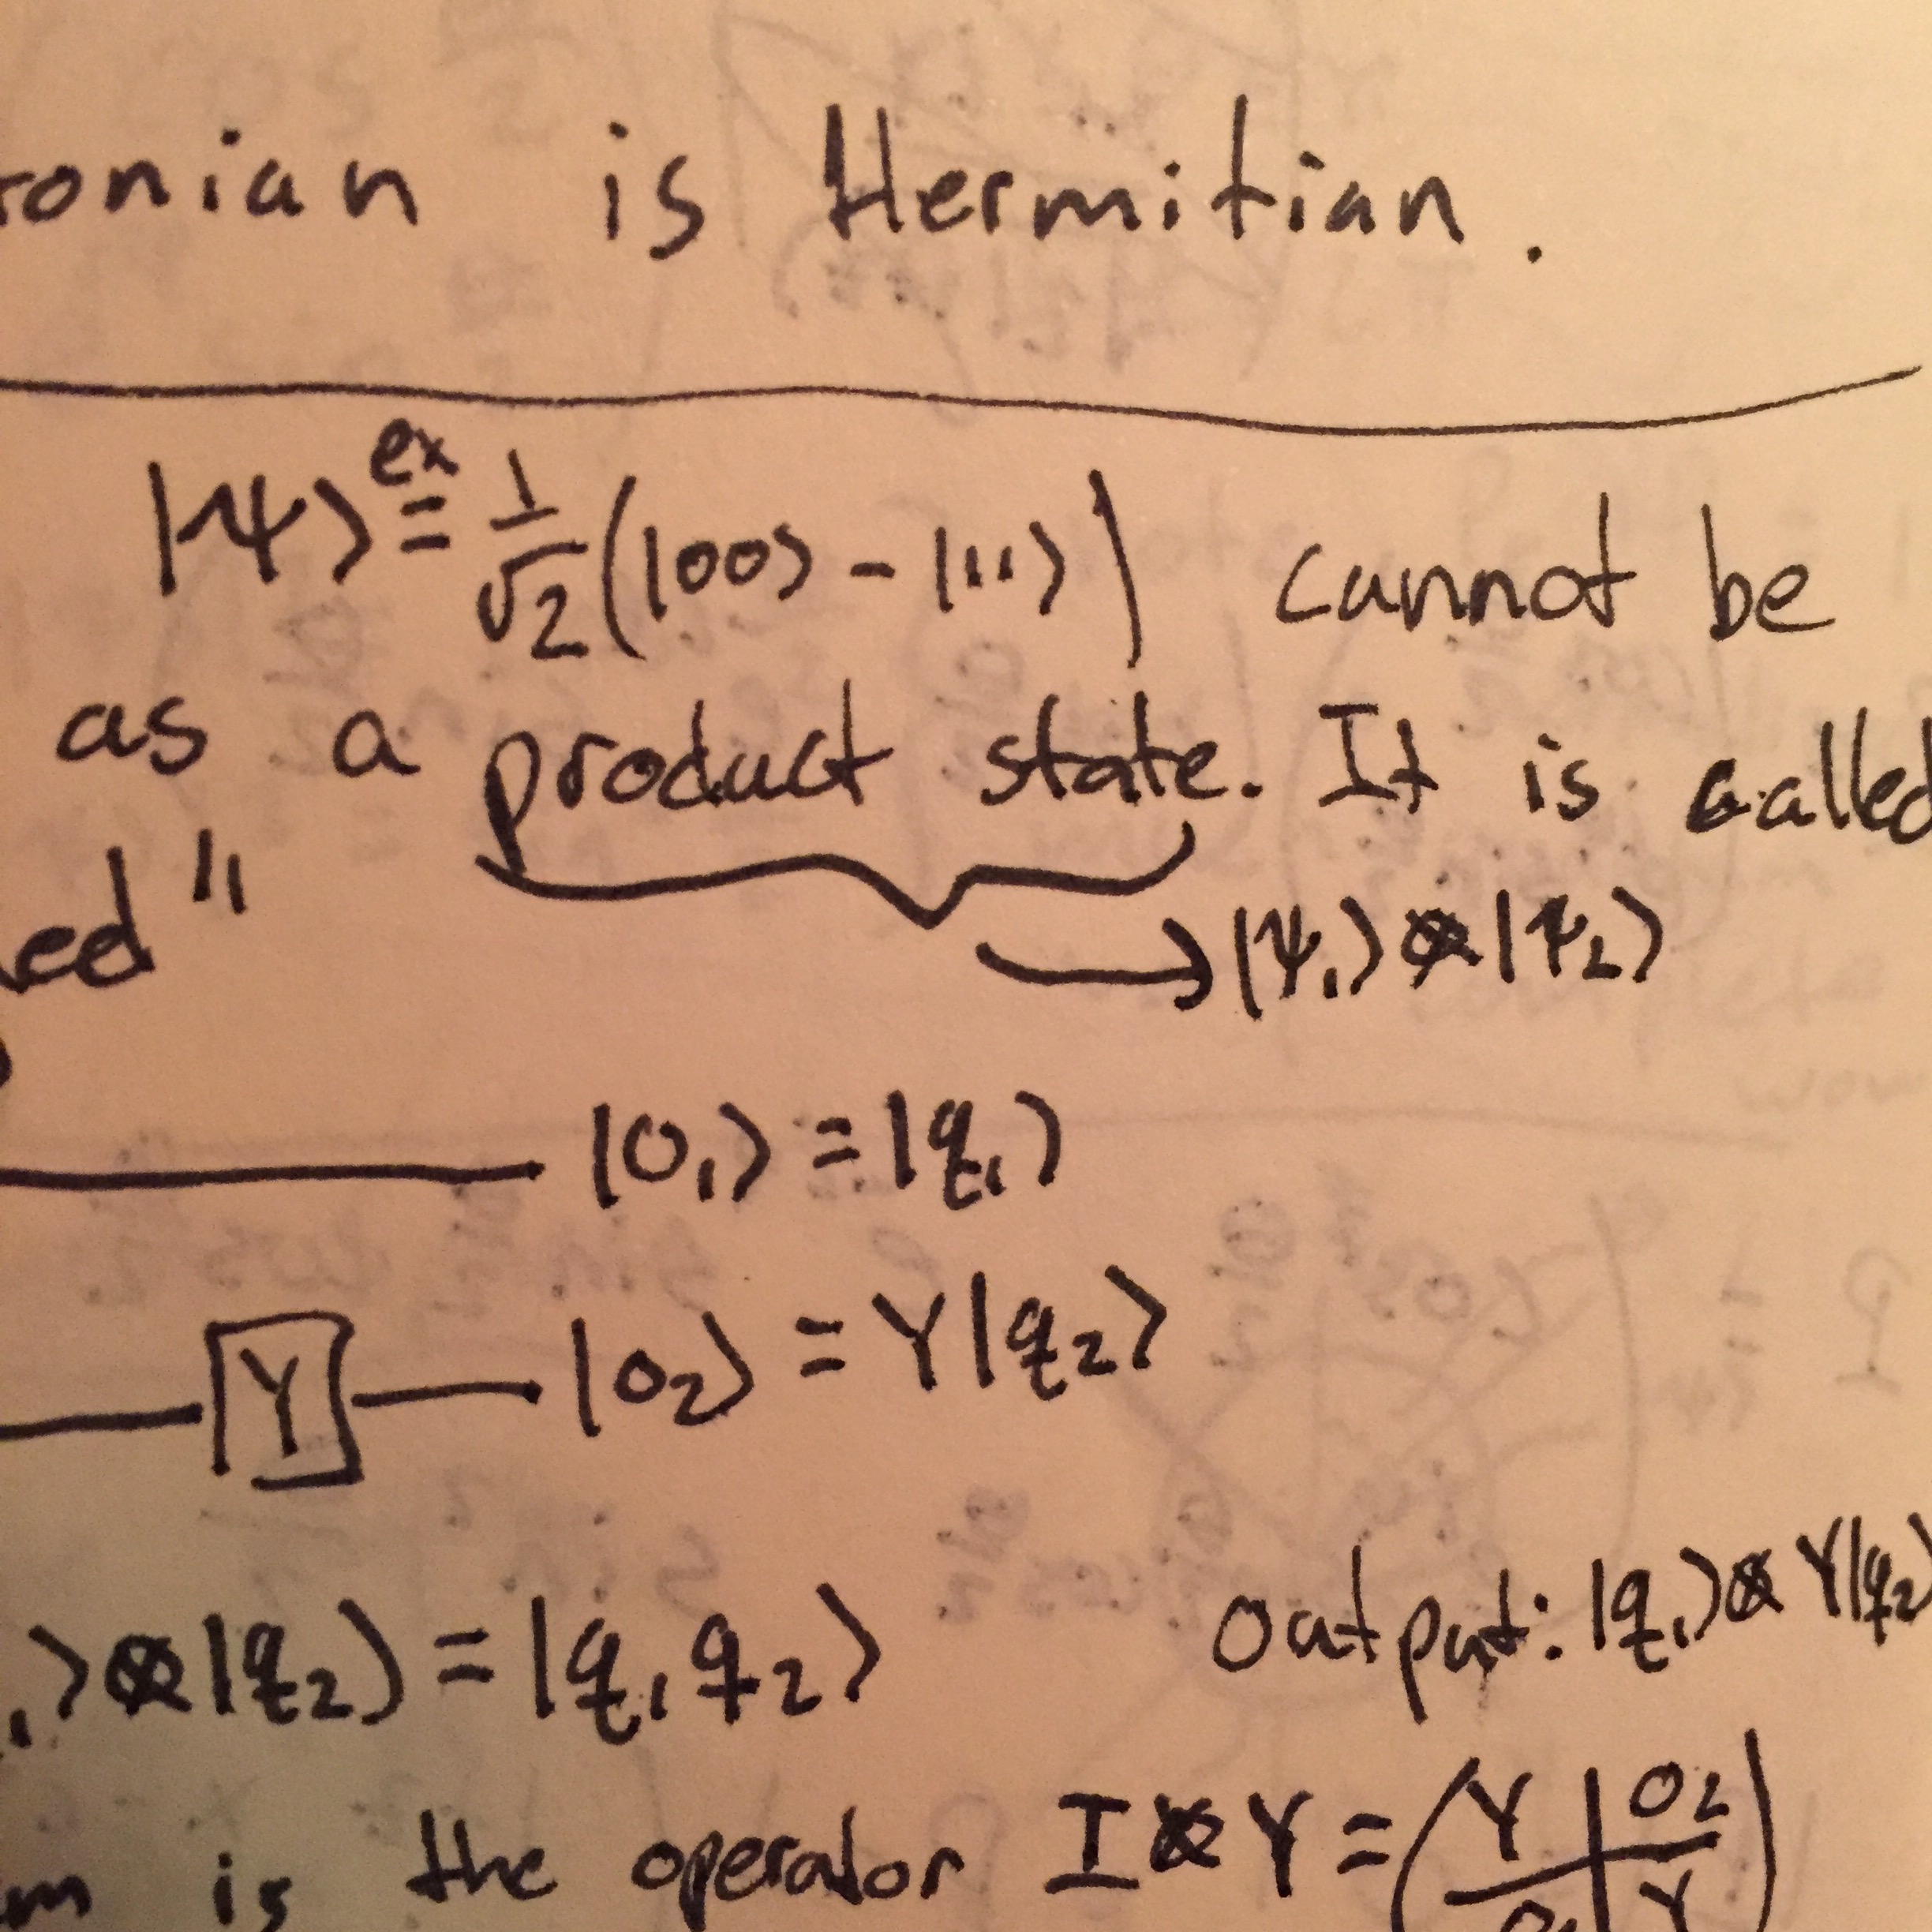 ronian is Hermitian.
|ψ⟩ ex= 1/√2 (|00⟩ - |11⟩) cannot be
as a product state. It is called
ed"
→ |ψ₁⟩ ⊗ |ψ₂⟩
|0₁⟩ = |q₁⟩
Y |0₂⟩ = Y|q₂⟩
output: |q₁⟩ ⊗ Y|q₂⟩
₁⟩ ⊗ |q₂⟩ = |q₁q₂⟩
m is the operator I ⊗ Y = (Y | 0₂
Y)